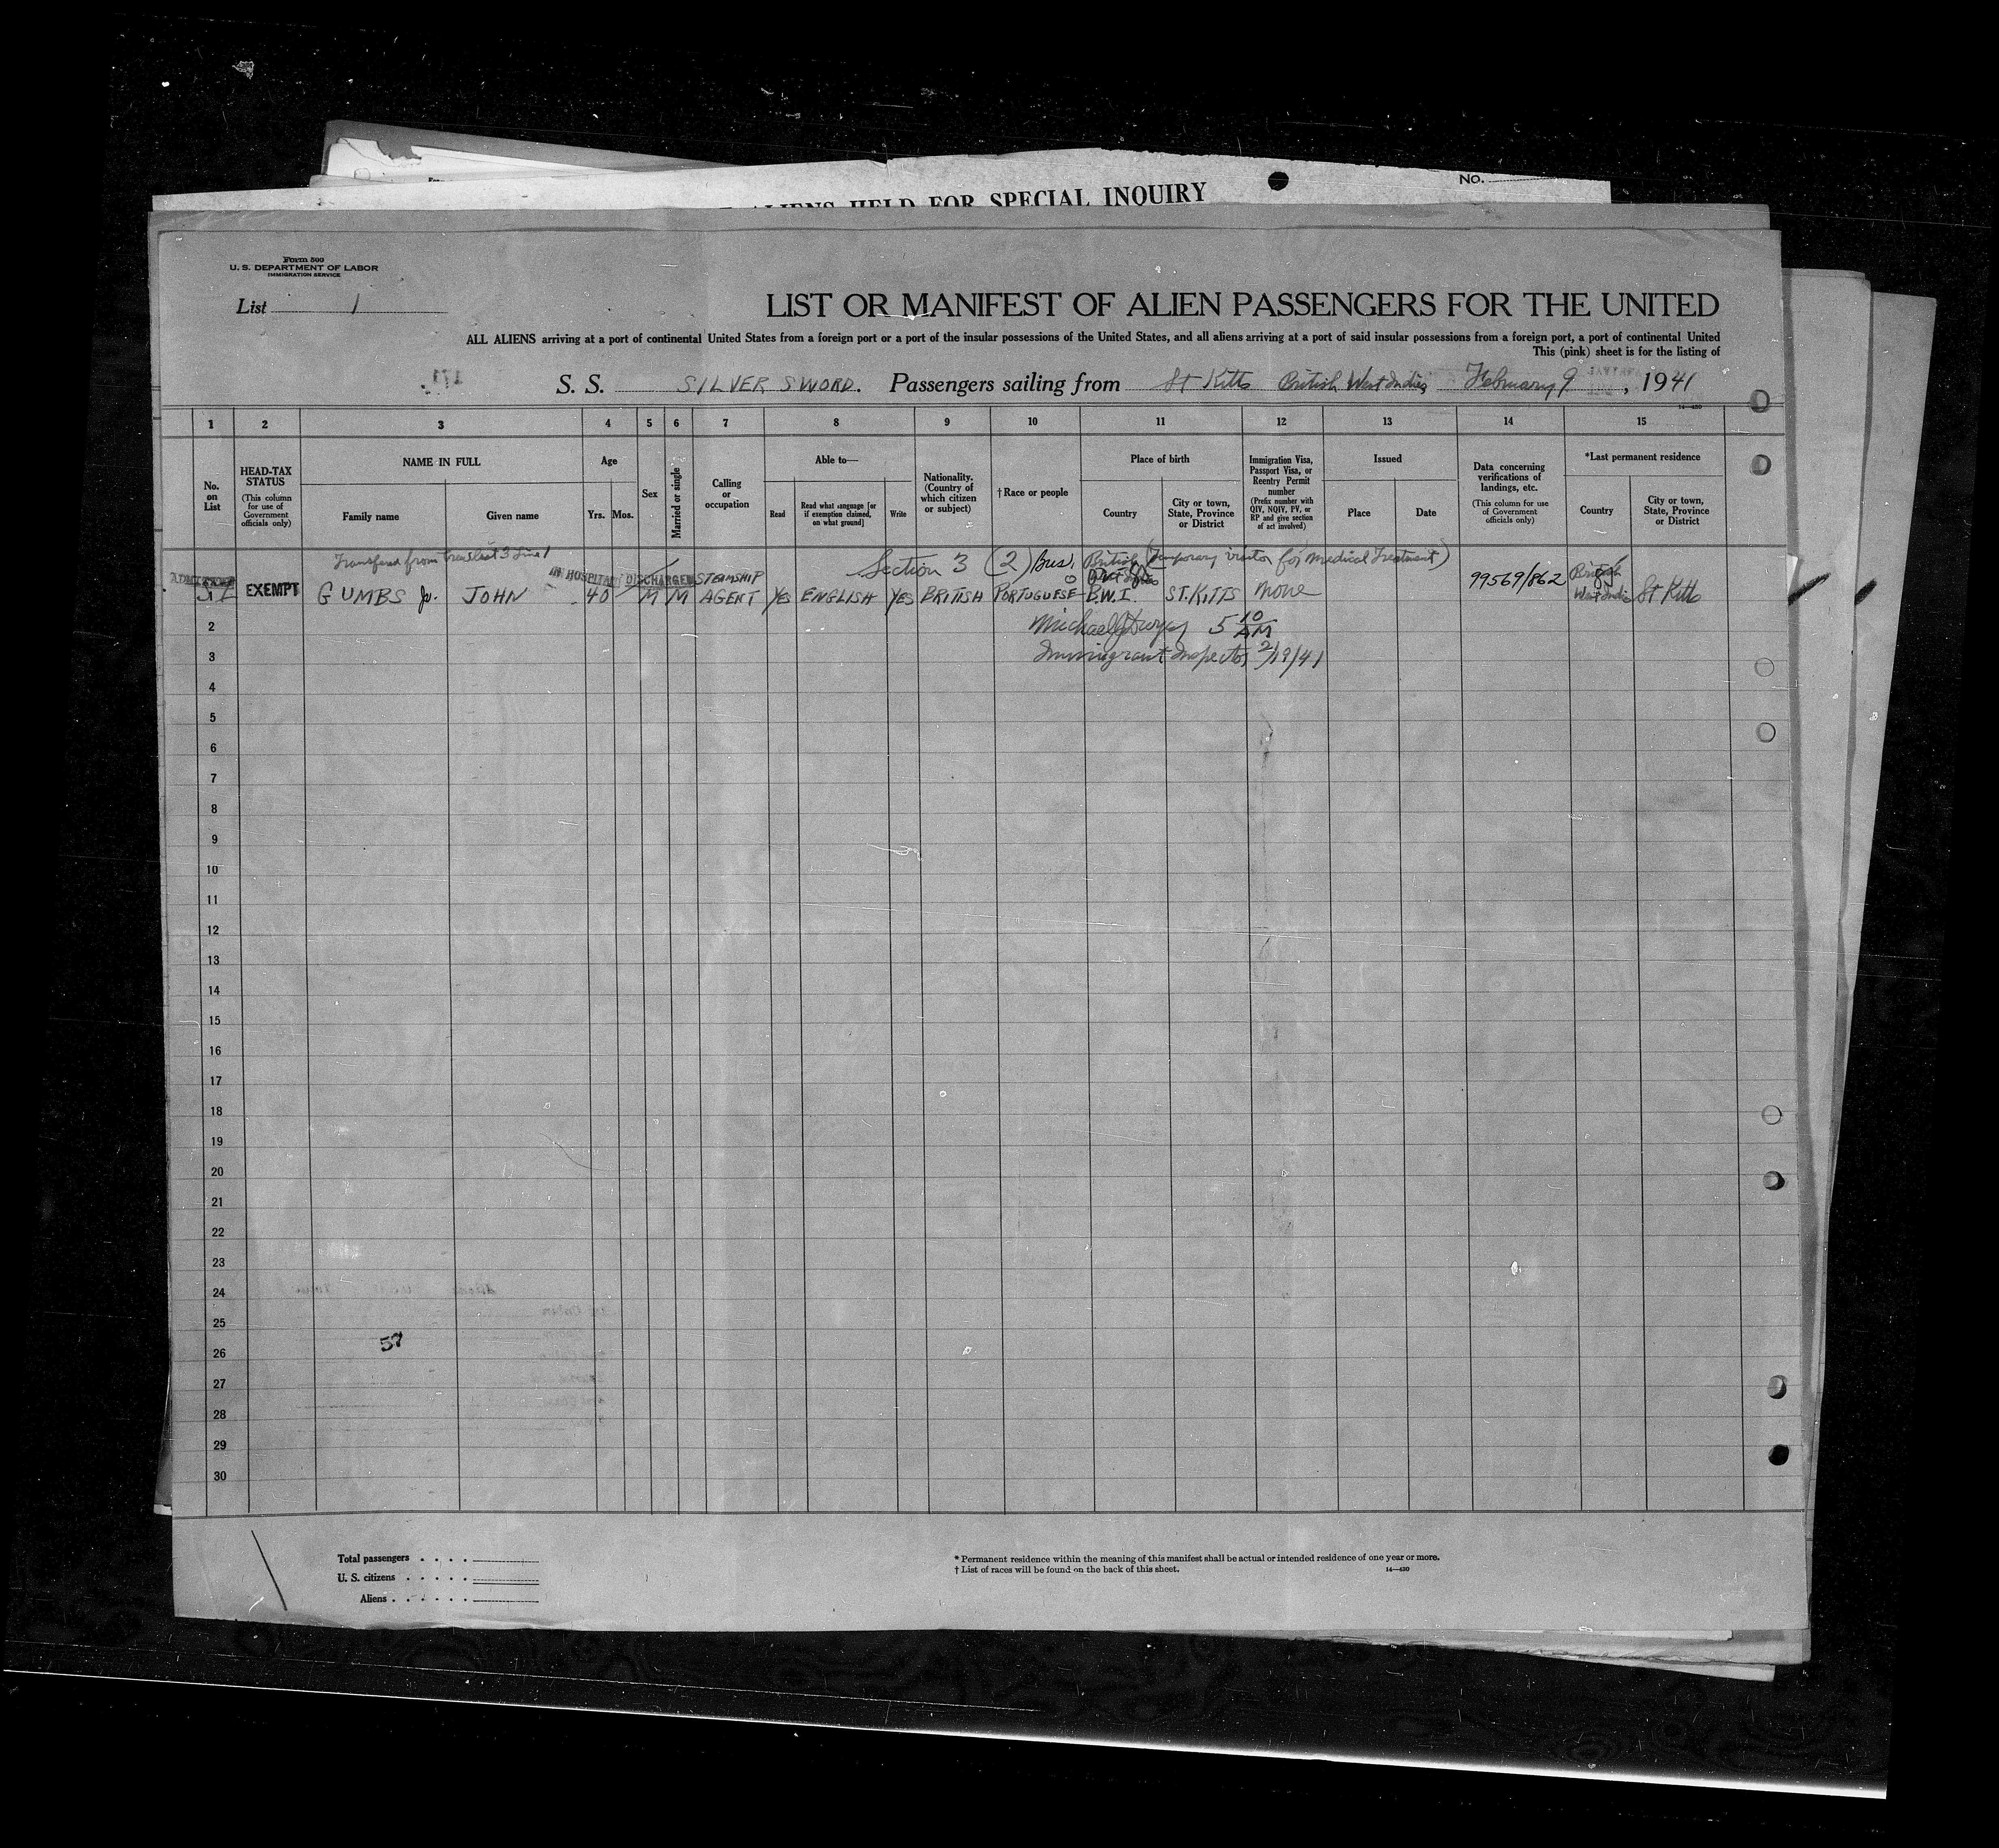 ALIENS HELD FOR SPECIAL INQUIRY
No.
Form 500
U. S. DEPARTMENT OF LABOR
IMMIGRATION SERVICE
List 1
LIST OR MANIFEST OF ALIEN PASSENGERS FOR THE UNITED
ALL ALIENS arriving at a port of continental United States from a foreign port or a port of the insular possessions of the United States, and all aliens arriving at a port of said insular possessions from a foreign port, a port of continental United
This (pink) sheet is for the listing of
171
S. S. SILVER SWORD. Passengers sailing from St Kitts British West Indies, February 9, 1941
14—430
1 2 3 4 5 6 7 8 9 10 11 12 13 14 15
No. on List
HEAD-TAX STATUS (This column for use of Government officials only)
NAME IN FULL
Family name
Given name
Age
Yrs. Mos.
Sex
Married or single
Calling or occupation
Able to—
Read
Read what language [or if exemption claimed, on what ground]
Write
Nationality. (Country of which citizen or subject)
†Race or people
Place of birth
Country
City or town, State, Province or District
Immigration Visa, Passport Visa, or Reentry Permit number (Prefix number with QIV, NQIV, PV, or RP and give section of act involved)
Issued
Place
Date
Data concerning verifications of landings, etc. (This column for use of Government officials only)
*Last permanent residence
Country
City or town, State, Province or District
Transferred from 3 Line 1
Section 3 (2) Bus. British West Indies (Temporary visitor for Medical Treatment)
ADMITTED
IN HOSPITAL DISCHARGED
EXEMPT GUMBS Jr. JOHN 40 M M STEAMSHIP AGENT YES ENGLISH YES BRITISH PORTUGUESE B.W.I. ST. KITTS None 99569/862 British West Indies St Kitts
2 Michael 5 10 AM
3 Immigrant Inspector 2/19/41
4
5
6
7
8
9
10
11
12
13
14
15
16
17
18
19
20
21
22
23
24
25
57
26
27
28
29
30
Total passengers . . . .
U. S. citizens . . . . .
Aliens . . . . . .
* Permanent residence within the meaning of this manifest shall be actual or intended residence of one year or more.
† List of races will be found on the back of this sheet.
14—430